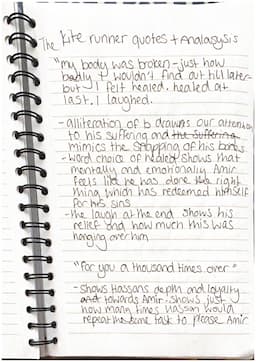 The Kite runner quotes + Analasysis
"my body was broken - just how
badly I wouldn't find out till later
but - I felt healed. healed at
last. I laughed.
- alliteration of b drawns our attention
to his suffering and the suffering
mimics the snapping of his bones
- word choice of healed shows that
mentally and emotionally Amir
feels like he has done the right
thing which has redeemed himself
for his sins
- the laugh at the end shows his
relief and how much this was
hanging over him
"For you a thousand times over"
- shows Hassans depth and loyalty
and towards Amir. Shows just
how many times Hassan would
repeat the same task to please Amir